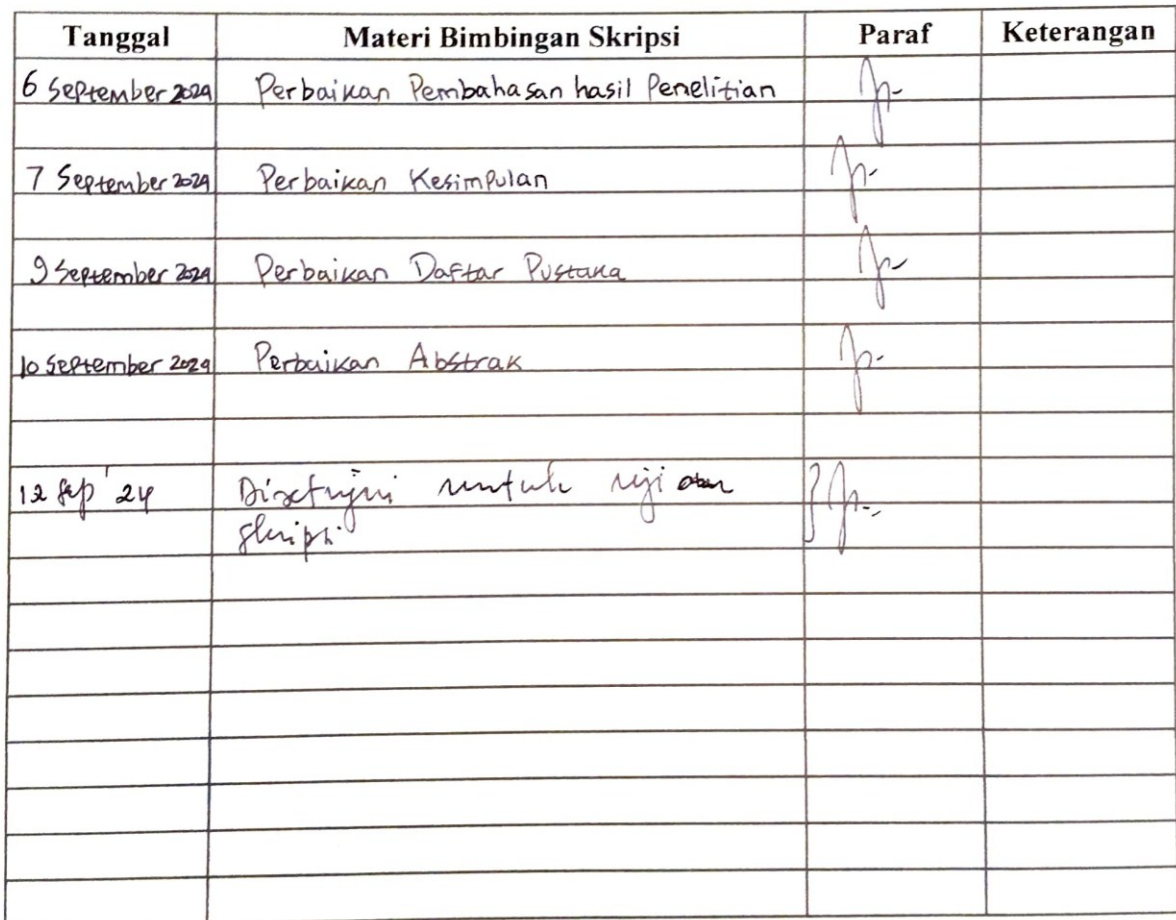 Tanggal Materi Bimbingan Skripsi Paraf Keterangan
6 September 2024 Perbaikan Pembahasan hasil Penelitian
7 September 2024 Perbaikan Kesimpulan
9 September 2024 Perbaikan Daftar Pustaka
10 September 2024 Perbaikan Abstrak
12 Sep '24 Disetujui untuk uji
skripsi